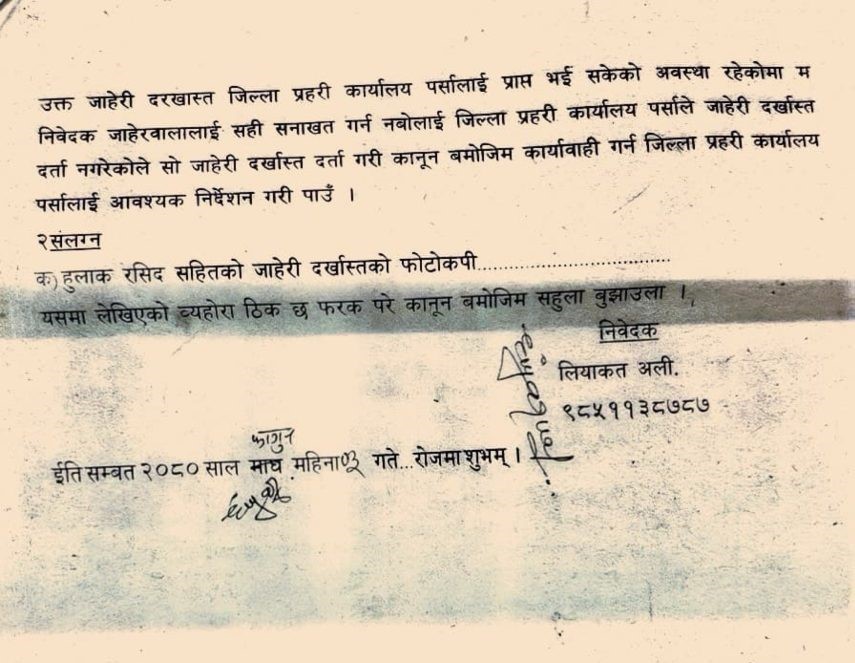 उक्त जाहेरी दरखास्त जिल्ला प्रहरी कार्यालय पर्सालाई प्राप्त भई सकेको अवस्था रहेकोमा म
निवेदक जाहेरवालालाई सही सनाखत गर्न नबोलाई जिल्ला प्रहरी कार्यालय पर्साले जाहेरी दर्खास्त
दर्ता नगरेकोले सो जाहेरी दर्खास्त दर्ता गरी कानून बमोजिम कार्यावाही गर्न जिल्ला प्रहरी कार्यालय
पर्सालाई आवश्यक निर्देशन गरी पाउँ ।
२संलग्न
क) हुलाक रसिद सहितको जाहेरी दर्खास्तको फोटोकपी.....................................
यसमा लेखिएको व्यहोरा ठिक छ फरक परे कानून बमोजिम सहुला बुझाउला ।
निवेदक
लियाकत अली.
९८५११३८७८७
फागुन
ईति सम्बत २०८० साल माघ महिना०३ गते...रोजमा शुभम् ।